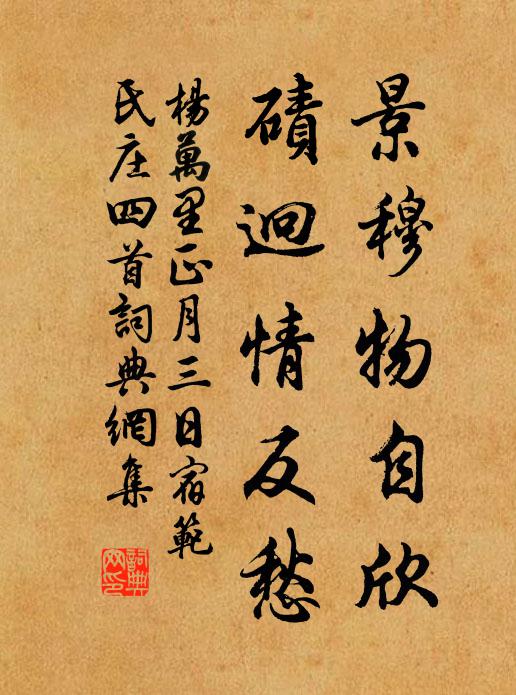 景穆物自欣
磧迥情反愁
楊萬里正月三日宿範
氏庄四首詞典網集
詞典網印